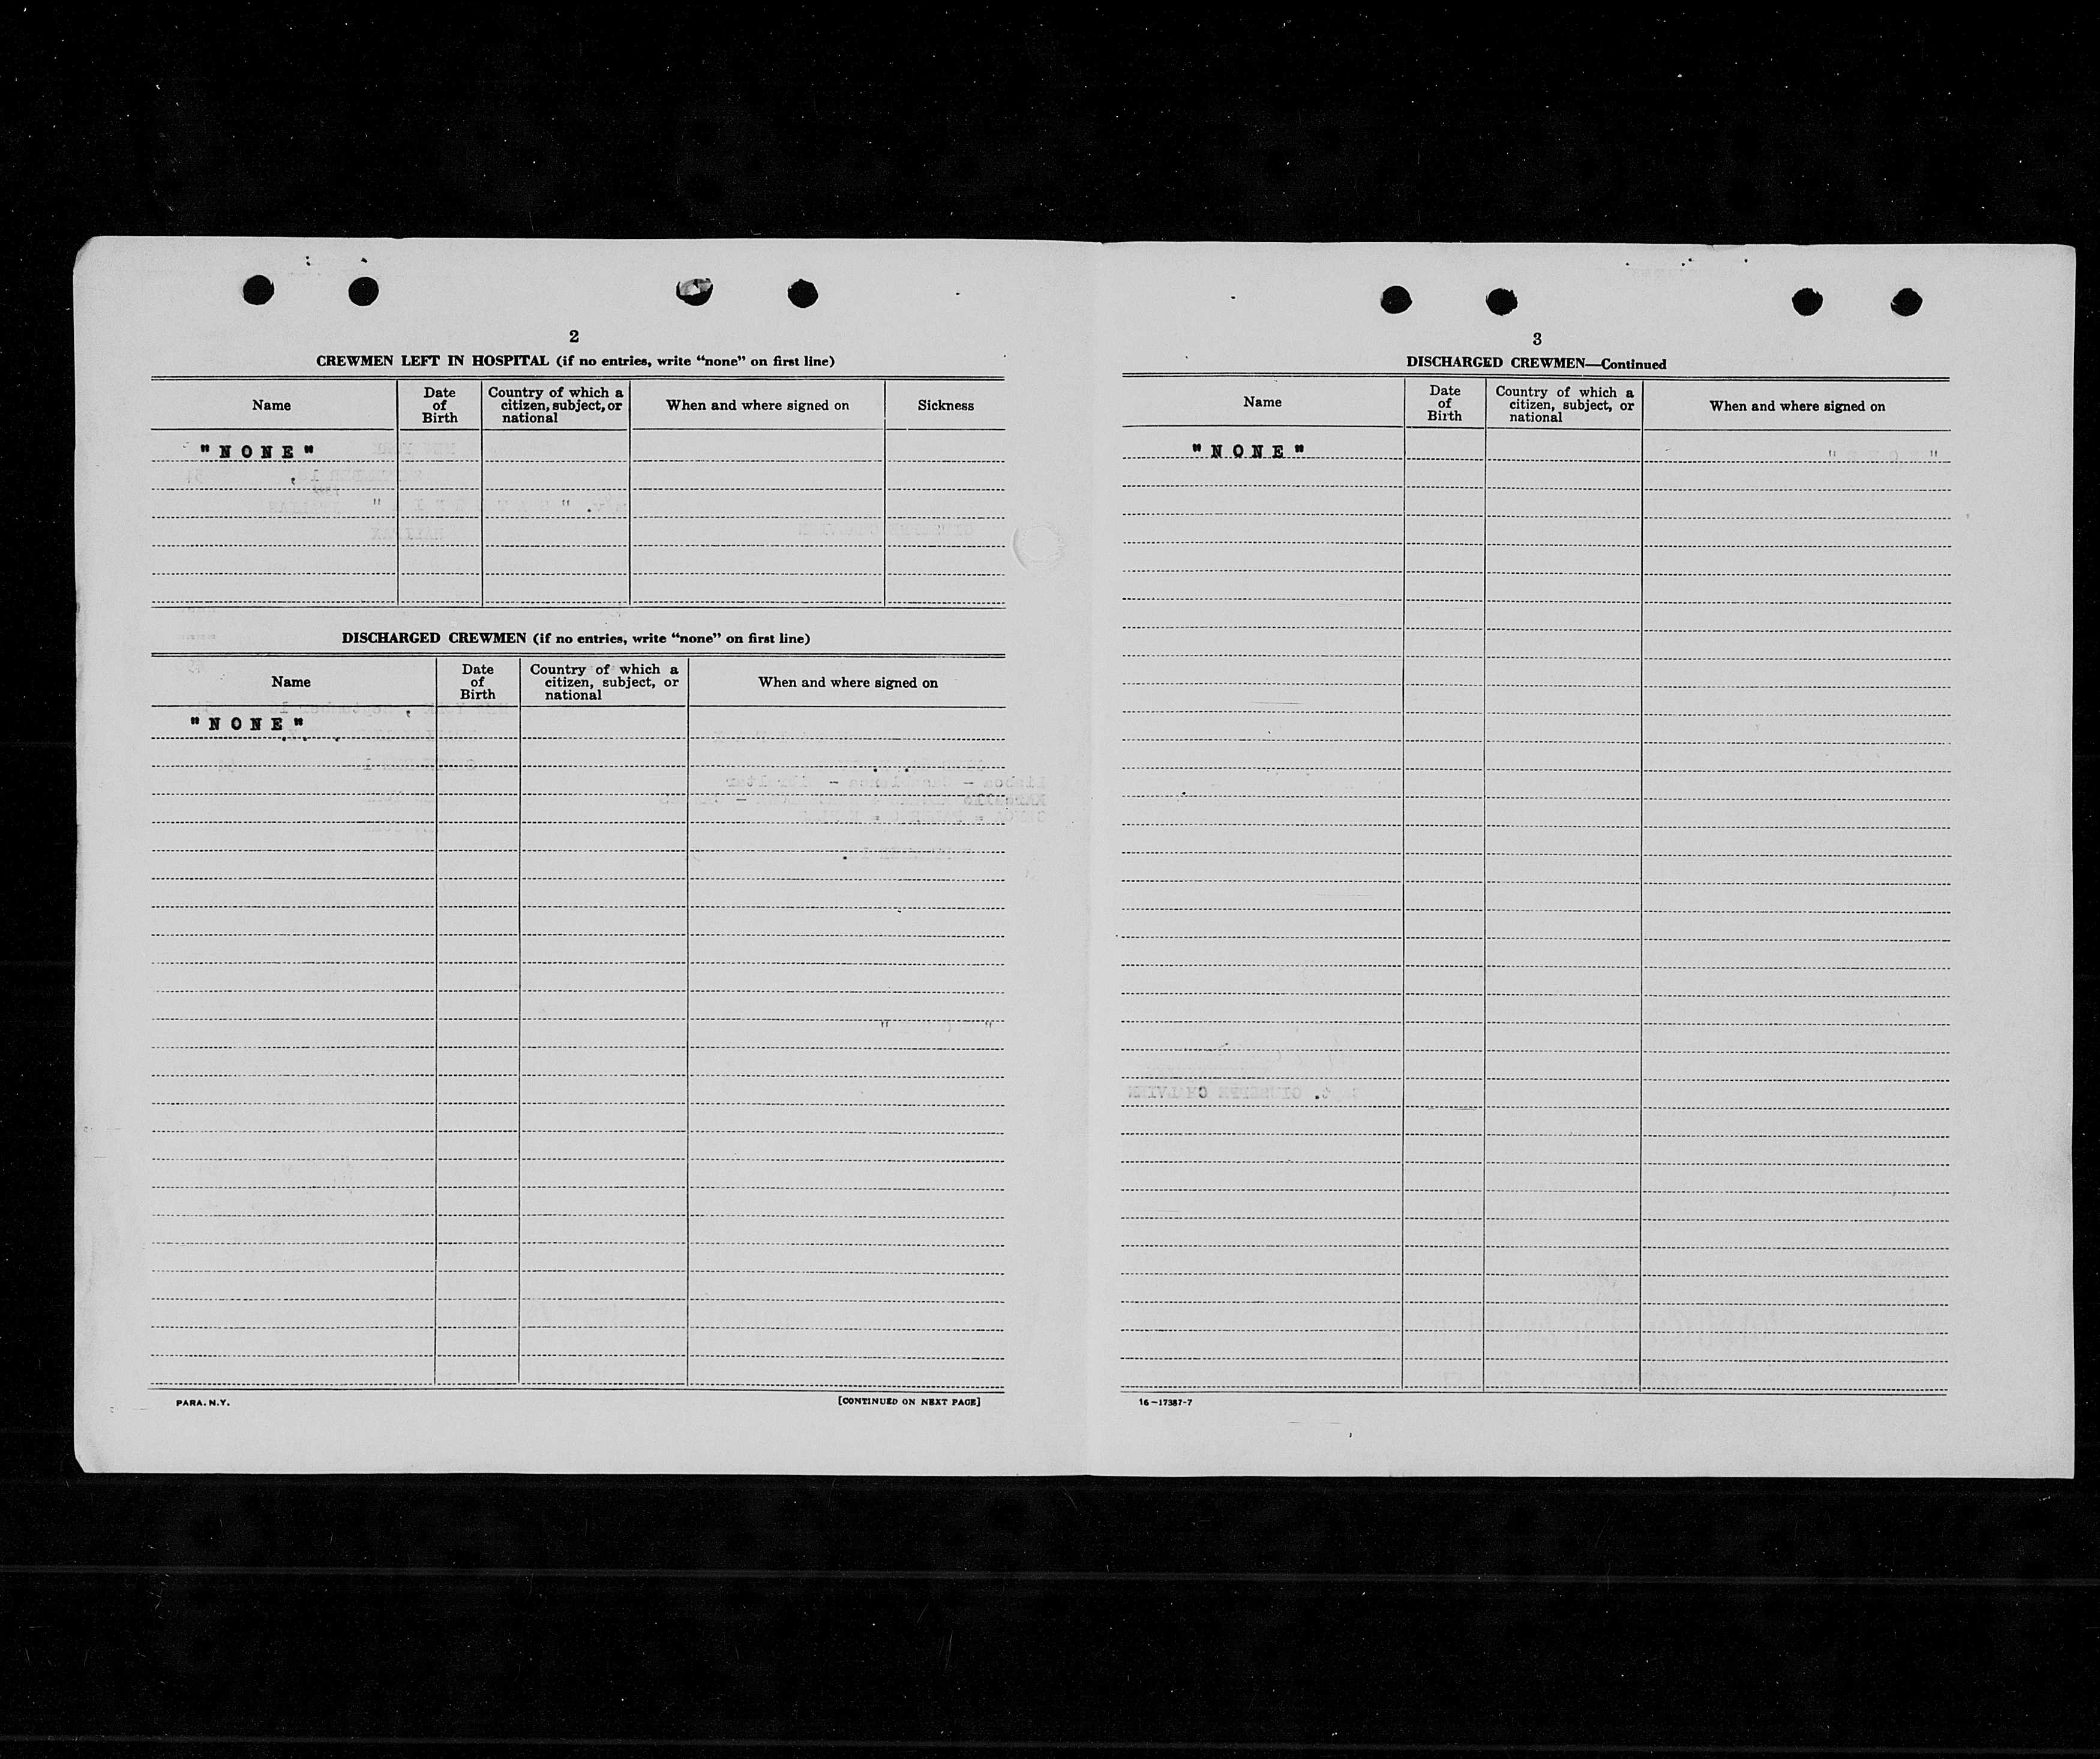 2
CREWMEN LEFT IN HOSPITAL (if no entries, write “none” on first line)
Name
Date of Birth
Country of which a citizen, subject, or national
When and where signed on
Sickness
"NONE"
DISCHARGED CREWMEN (if no entries, write “none” on first line)
Name
Date of Birth
Country of which a citizen, subject, or national
When and where signed on
"NONE"
PARA. N.Y.
[CONTINUED ON NEXT PAGE]
3
DISCHARGED CREWMEN—Continued
Name
Date of Birth
Country of which a citizen, subject, or national
When and where signed on
"NONE"
16—17387-7